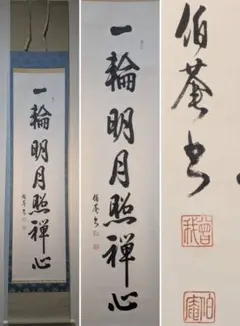 一輪明月照禅心
伯菴書
一輪明月照禅心
伯菴書
伯菴書